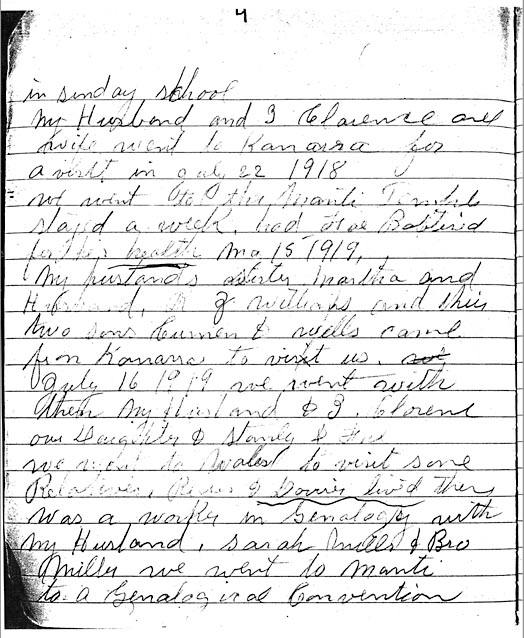 4
in sunday school
My Husband and I Clarence and
wife went to Kanarra for
a visit in July 22 1918
we went to the Manti Temple
stayed a week, had Baptized
for her health Ma 15 1919,
My husbands sister Martha and
Husband, Williams and their
two sons & wells came
from Kanarra to visit us.
July 16 1919 we went with
them My Husband & I.
our Daughter & Stanly &
we went to Wales to visit some
Relatives, lived there
was a worker in Genalogy with
My Husband, Sarah & Bro
Miller we went to Manti
to a Genalogical Convention